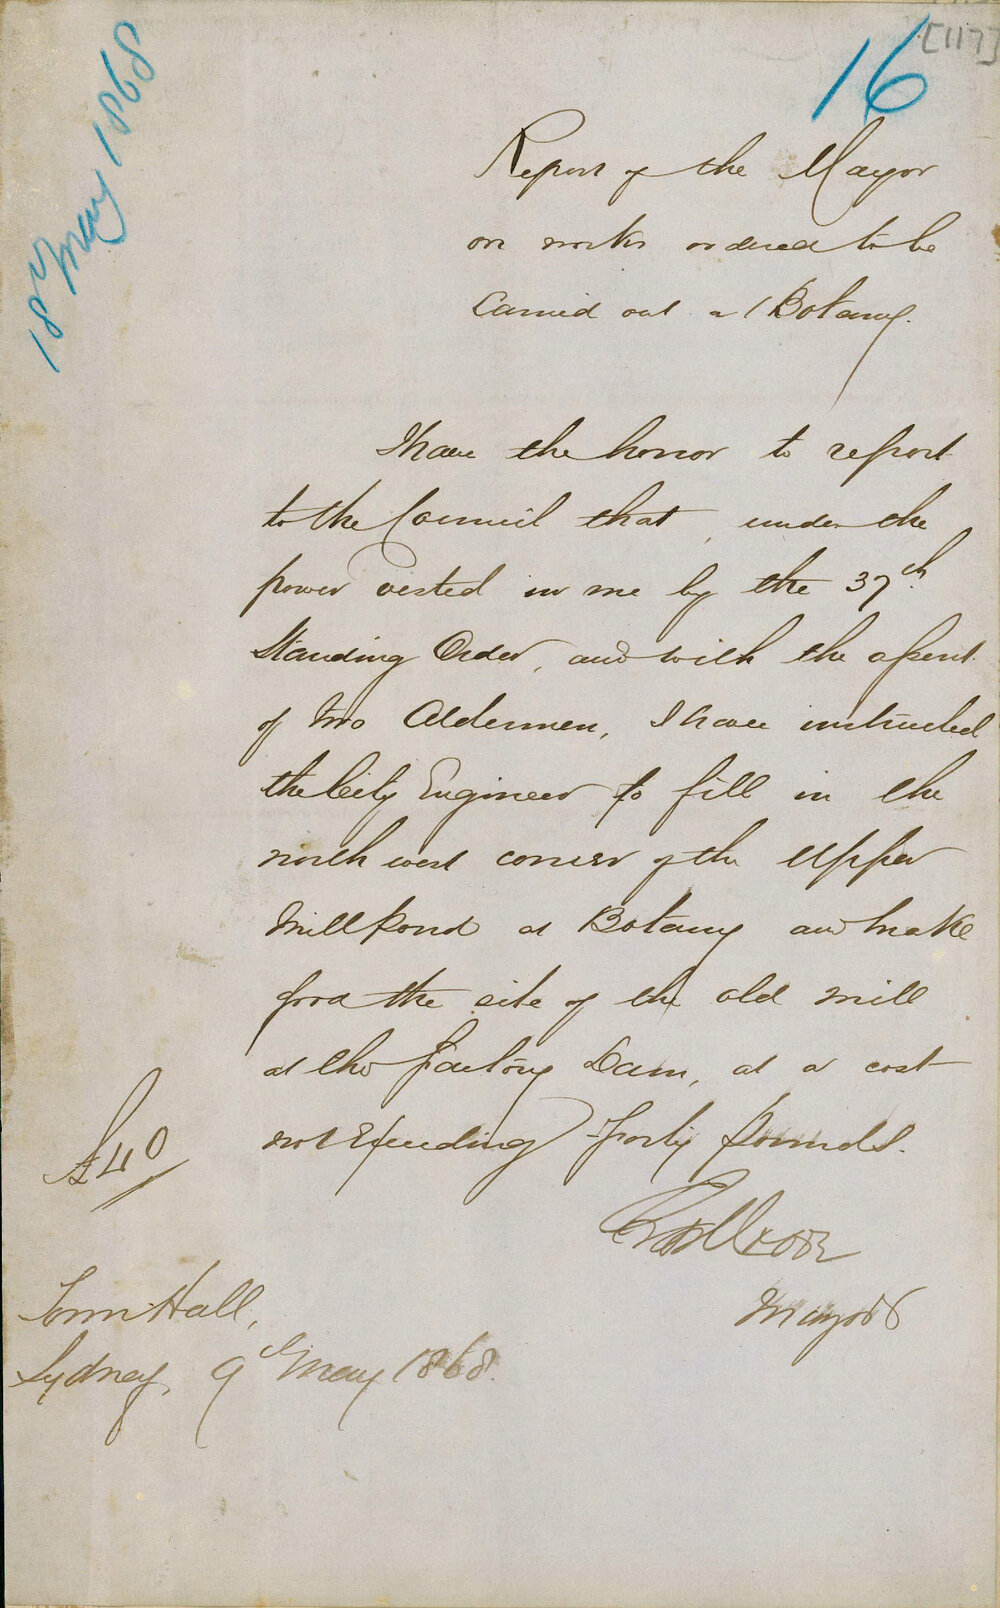 16
[117]
18th May 1868
Report of the Mayor
on works ordered to be
Carried out at Botany.
I have the honor to report
to the Council that, under the
power vested in me by the 37th
Standing Order, and with the assent
of two Aldermen, I have instructed
the City Engineer to fill in the
north west corner of the Upper
Mill Pond at Botany and make
good the site of the old mill
at the Factory Dam, at a cost
not exceeding forty pounds.
£40
Chas Moore
Mayor
Town Hall,
Sydney, 9th May 1868.